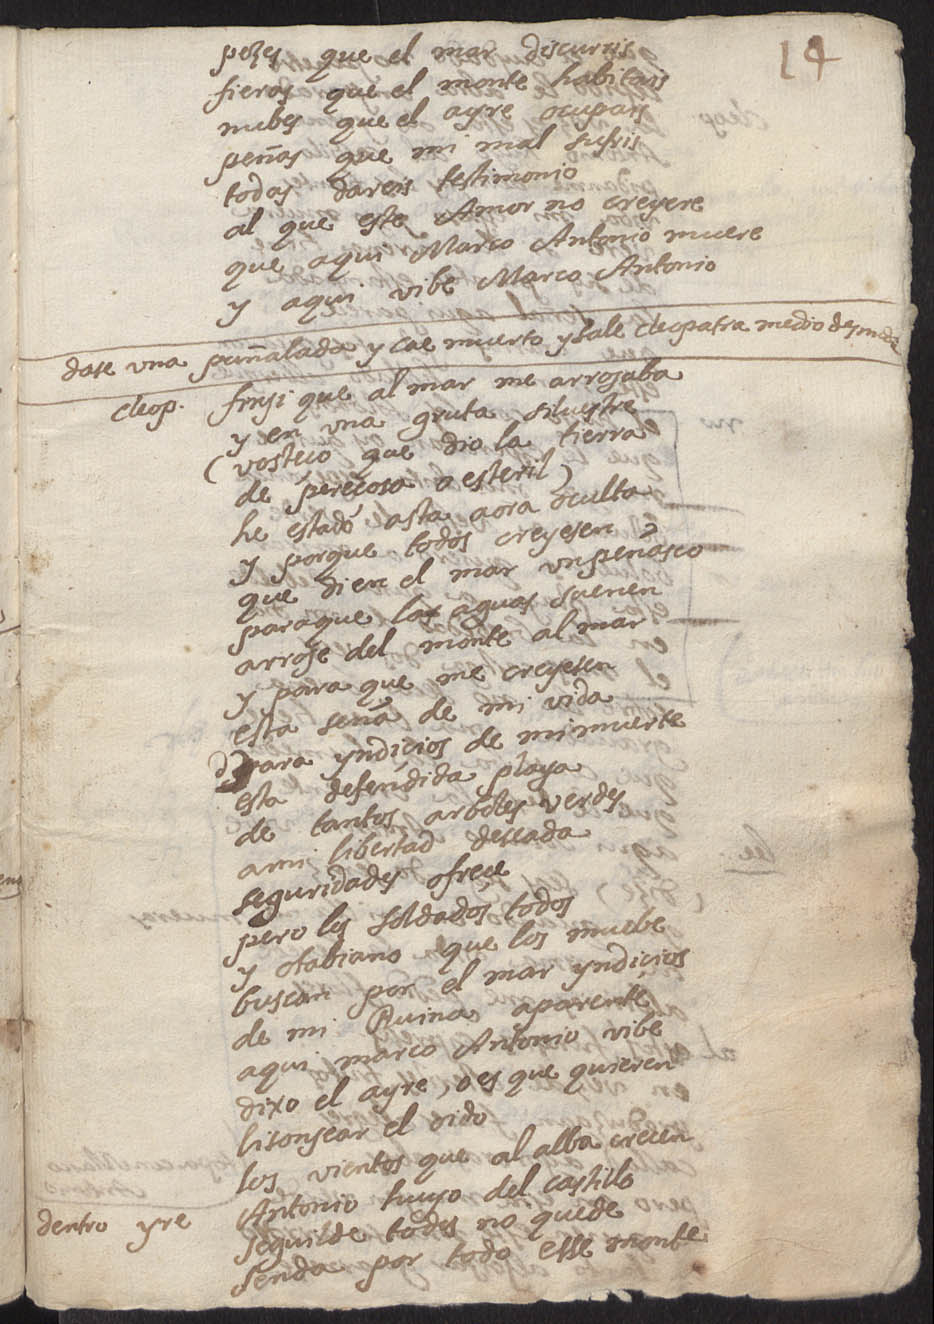 14
pezes que el mar discurris
fieras que el monte habitais
nubes que el ayre ocupais
peñas que mi mal sufris
todas dareis testimonio
al que este Amor no creyere
que aqui Marco Antonio muere
y aqui vibe Marco Antonio
dase vna puñalada y cae muerto y sale cleopatra medio desnuda
cleop. finji que al mar me arrojaba
y en vna gruta silvestre
(vosteço que dio la tierra
de pereçosa o esteril)
he estado asta aora oculta
y porque todos creyesen
que di en el mar vn peñasco
para que las aguas suenen
arroje del monte al mar
y para que me creyesen
esta seña de mi vida
para yndicios de mi muerte
esta defendida playa
de tantos arboles verdes
a mi libertad deseada
seguridades ofrece
pero los soldados todos
y otabiano que los muebe
buscan por el mar yndicios
de mi Ruina aparente
aqui marco Antonio vibe
dixo el ayre, o es que quieren
lisonjear el oido
los vientos que al alba crecen
Antonio huyo del castillo
dentro yre seguilde todos no quede
senda por todo esse monte